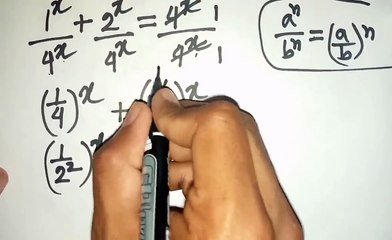 1^x/4^x + 2^x/4^x = 4^x/4^x 1/1
a^n/b^n = (a/b)^n
(1/4)^x + ( )^x
(1/2^2)^x